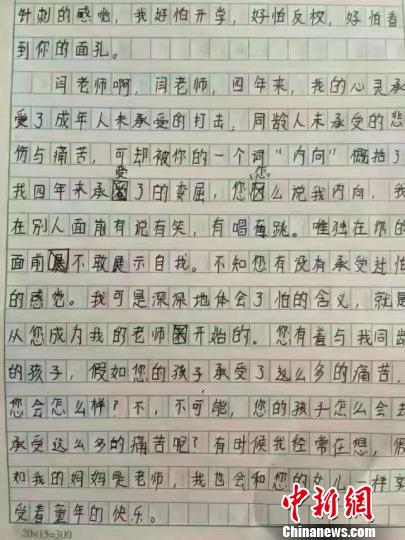 针刺的感觉，我好怕开学，好怕返校，好怕看
到你的面孔。
闫老师啊，闫老师，四年来，我的心灵承
受了成年人未承受的打击，同龄人未承受的悲
伤与痛苦，可却被你的一个词“内向”概括了
我四年来承受了的委屈，您怎么说我内向，我
在别人面前有说有笑，有唱有跳。唯独在你的
面前不敢展示自我。不知您有没有承受过怕
的感觉。我可是深深地体会了怕的含义，就是
从您成为我的老师开始的。您有着与我同龄
的孩子，假如您的孩子承受了这么多的痛苦，
您会怎么样？不，不可能，您的孩子怎么会去
承受这么多的痛苦呢？有时候我经常在想，假
如我的妈妈是老师，我也会和您的女儿一样享
受着童年的快乐。
20×15=300
中新网
Chinanews.com